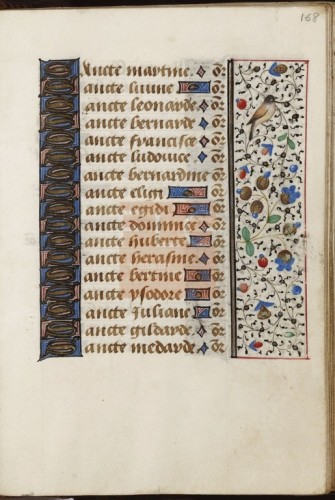 168
Sancte martine. oꝛ̄
Sancte liuine oꝛ̄
Sancte leonarde oꝛ̄
Sancte bernarde oꝛ̄
Sancte francisce oꝛ̄
Sancte ludouice oꝛ̄
Sancte bernardine oꝛ̄
Sancte eligi oꝛ̄
Sancte egidi oꝛ̄
Sancte dominice oꝛ̄
Sancte huberte oꝛ̄
Sancte herasme oꝛ̄
Sancte bertine oꝛ̄
Sancte ysodore oꝛ̄
Sancte Juliane oꝛ̄
Sancte gildarde oꝛ̄
Sancte medarde oꝛ̄